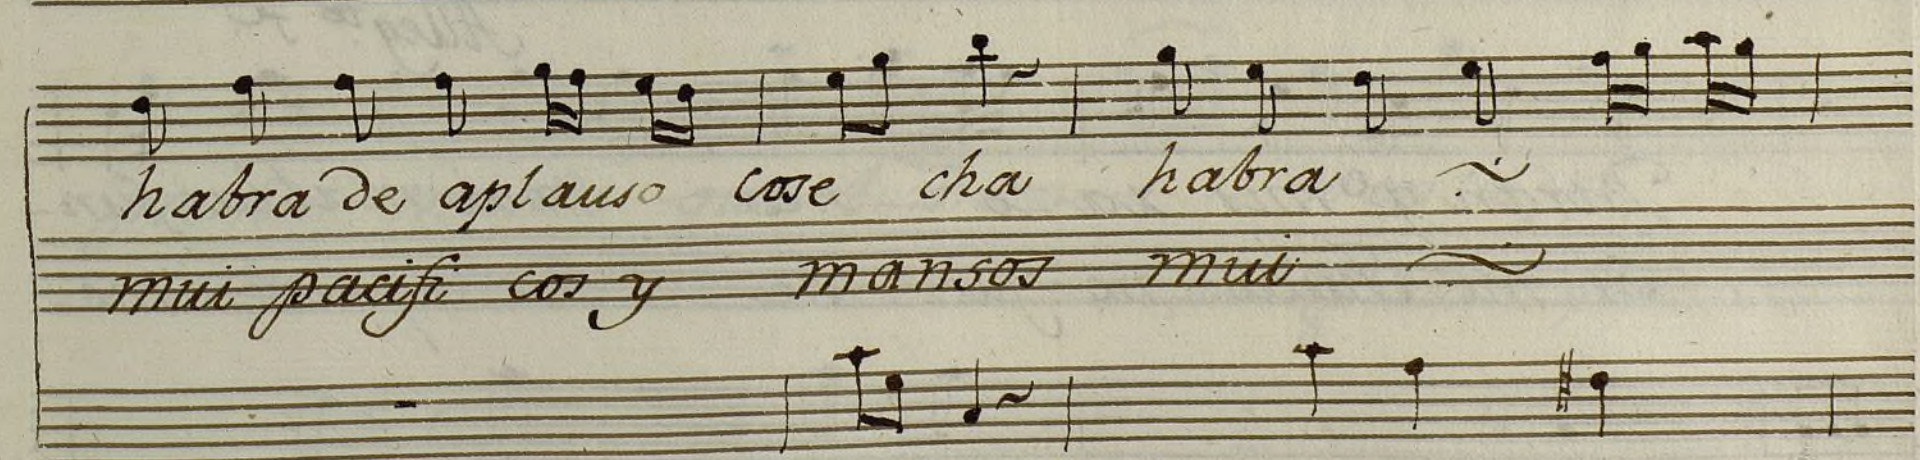 habra de aplauso cose cha habra ~
mui pacifi cos y mansos mui ~